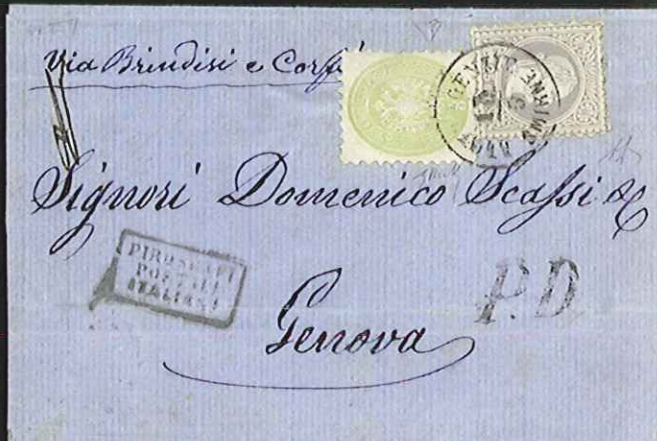 Via Brindisi e Corfù
Signori Domenico Scassi &C
PIROSCAFI
POSTALI
ITALIANI
P.D
Genova